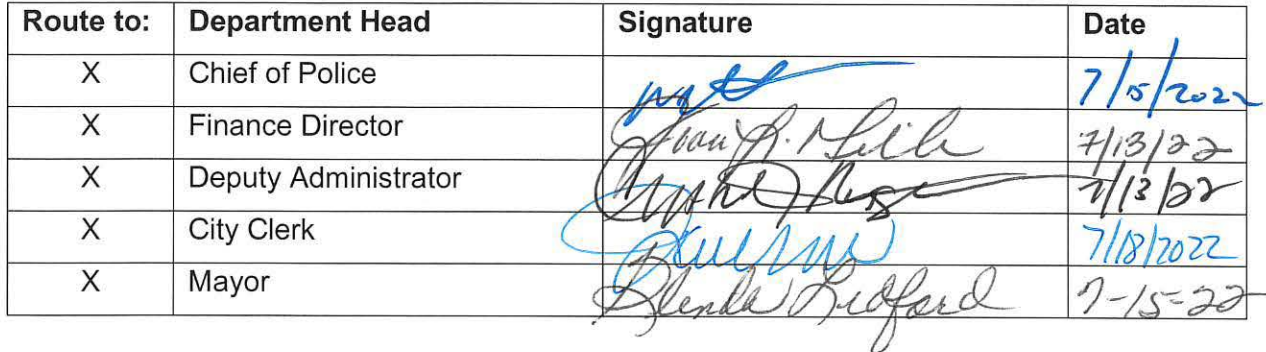 Route to: Department Head Signature Date
X Chief of Police 7/15/2022
X Finance Director Joan R. 7/13/22
X Deputy Administrator 7/13/22
X City Clerk 7/18/2022
X Mayor Glenda Ledford 7-15-22